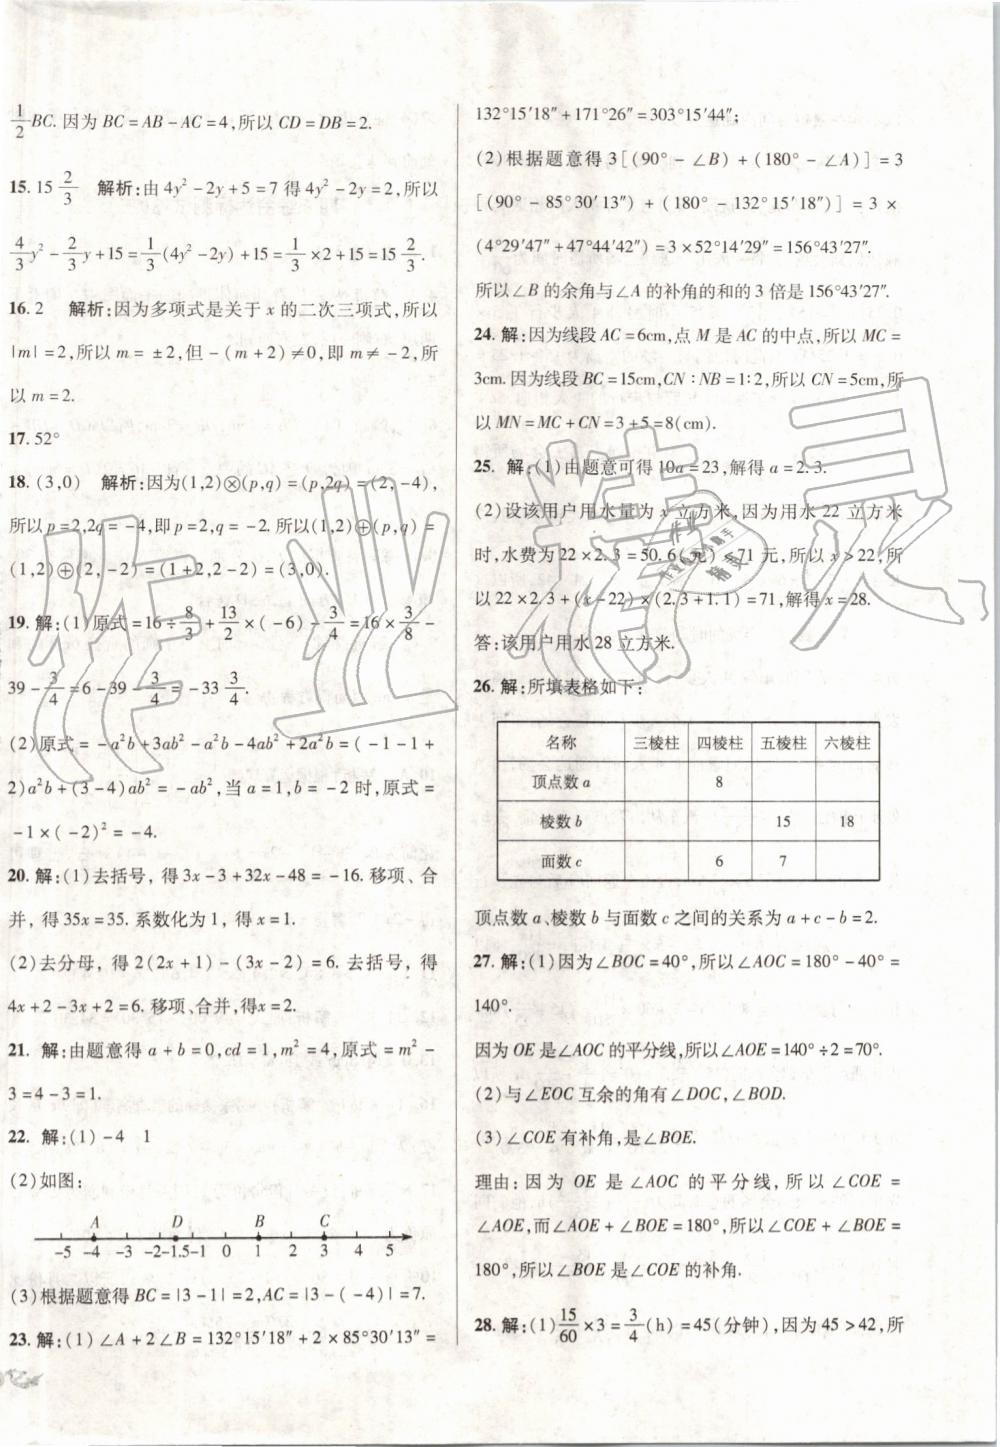 1/2 BC. 因为 BC = AB - AC = 4, 所以 CD = DB = 2.
15. 15 2/3  解析: 由 4y² - 2y + 5 = 7 得 4y² - 2y = 2, 所以
4/3 y² - 2/3 y + 15 = 1/3 (4y² - 2y) + 15 = 1/3 × 2 + 15 = 15 2/3.
16. 2  解析: 因为多项式是关于 x 的二次三项式, 所以
|m| = 2, 所以 m = ±2, 但 -(m+2) ≠ 0, 即 m ≠ -2, 所
以 m = 2.
17. 52°
18. (3,0)  解析: 因为(1,2)⊗(p,q) = (p,2q) = (2,-4),
所以 p = 2, 2q = -4, 即 p = 2, q = -2. 所以(1,2)⊕(p,q) =
(1,2)⊕(2,-2) = (1+2,2-2) = (3,0).
19. 解: (1) 原式 = 16 ÷ 8/3 + 13/2 × (-6) - 3/4 = 16 × 3/8 -
39 - 3/4 = 6 - 39 - 3/4 = -33 3/4.
(2) 原式 = -a²b + 3ab² - a²b - 4ab² + 2a²b = (-1-1+
2)a²b + (3-4)ab² = -ab², 当 a = 1, b = -2 时, 原式 =
-1 × (-2)² = -4.
20. 解: (1) 去括号, 得 3x - 3 + 32x - 48 = -16. 移项、合
并, 得 35x = 35. 系数化为 1, 得 x = 1.
(2) 去分母, 得 2(2x+1) - (3x-2) = 6. 去括号, 得
4x + 2 - 3x + 2 = 6. 移项、合并, 得x = 2.
21. 解: 由题意得 a + b = 0, cd = 1, m² = 4, 原式 = m² -
3 = 4 - 3 = 1.
22. 解: (1) -4  1
(2) 如图:
A D B C
-5 -4 -3 -2 -1.5 -1 0 1 2 3 4 5
(3) 根据题意得 BC = |3-1| = 2, AC = |3-(-4)| = 7.
23. 解: (1) ∠A + 2∠B = 132°15′18″ + 2 × 85°30′13″ =
132°15′18″ + 171°26″ = 303°15′44″;
(2) 根据题意得 3[(90° - ∠B) + (180° - ∠A)] = 3
[(90° - 85°30′13″) + (180° - 132°15′18″)] = 3 ×
(4°29′47″ + 47°44′42″) = 3 × 52°14′29″ = 156°43′27″.
所以∠B 的余角与∠A 的补角的和的 3 倍是 156°43′27″.
24. 解: 因为线段 AC = 6cm, 点 M 是 AC 的中点, 所以 MC =
3cm. 因为线段 BC = 15cm, CN∶NB = 1∶2, 所以 CN = 5cm, 所
以 MN = MC + CN = 3 + 5 = 8(cm).
25. 解: (1) 由题意可得 10a = 23, 解得 a = 2.3.
(2) 设该用户用水量为 x 立方米, 因为用水 22 立方米
时, 水费为 22 × 2.3 = 50.6(元) < 71 元, 所以 x > 22, 所
以 22 × 2.3 + (x-22) × (2.3+1.1) = 71, 解得 x = 28.
答: 该用户用水 28 立方米.
26. 解: 所填表格如下:
名称 三棱柱 四棱柱 五棱柱 六棱柱
顶点数 a 8
棱数 b 15 18
面数 c 6 7
顶点数 a、棱数 b 与面数 c 之间的关系为 a + c - b = 2.
27. 解: (1) 因为∠BOC = 40°, 所以∠AOC = 180° - 40° =
140°.
因为 OE 是∠AOC 的平分线, 所以∠AOE = 140° ÷ 2 = 70°.
(2) 与∠EOC 互余的角有∠DOC, ∠BOD.
(3) ∠COE 有补角, 是∠BOE.
理由: 因为 OE 是∠AOC 的平分线, 所以∠COE =
∠AOE, 而∠AOE + ∠BOE = 180°, 所以∠COE + ∠BOE =
180°, 所以∠BOE 是∠COE 的补角.
28. 解: (1) 15/60 × 3 = 3/4 (h) = 45(分钟), 因为 45 > 42, 所
作业精灵